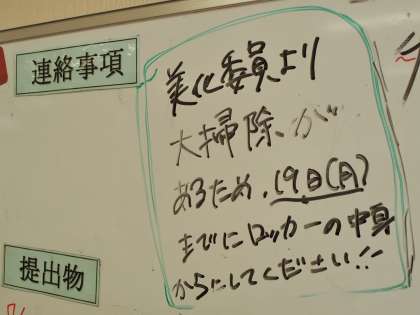 連絡事項
美化委員より
大掃除が
あるため、19日(月)
までにロッカーの中身
からにしてください!!
提出物